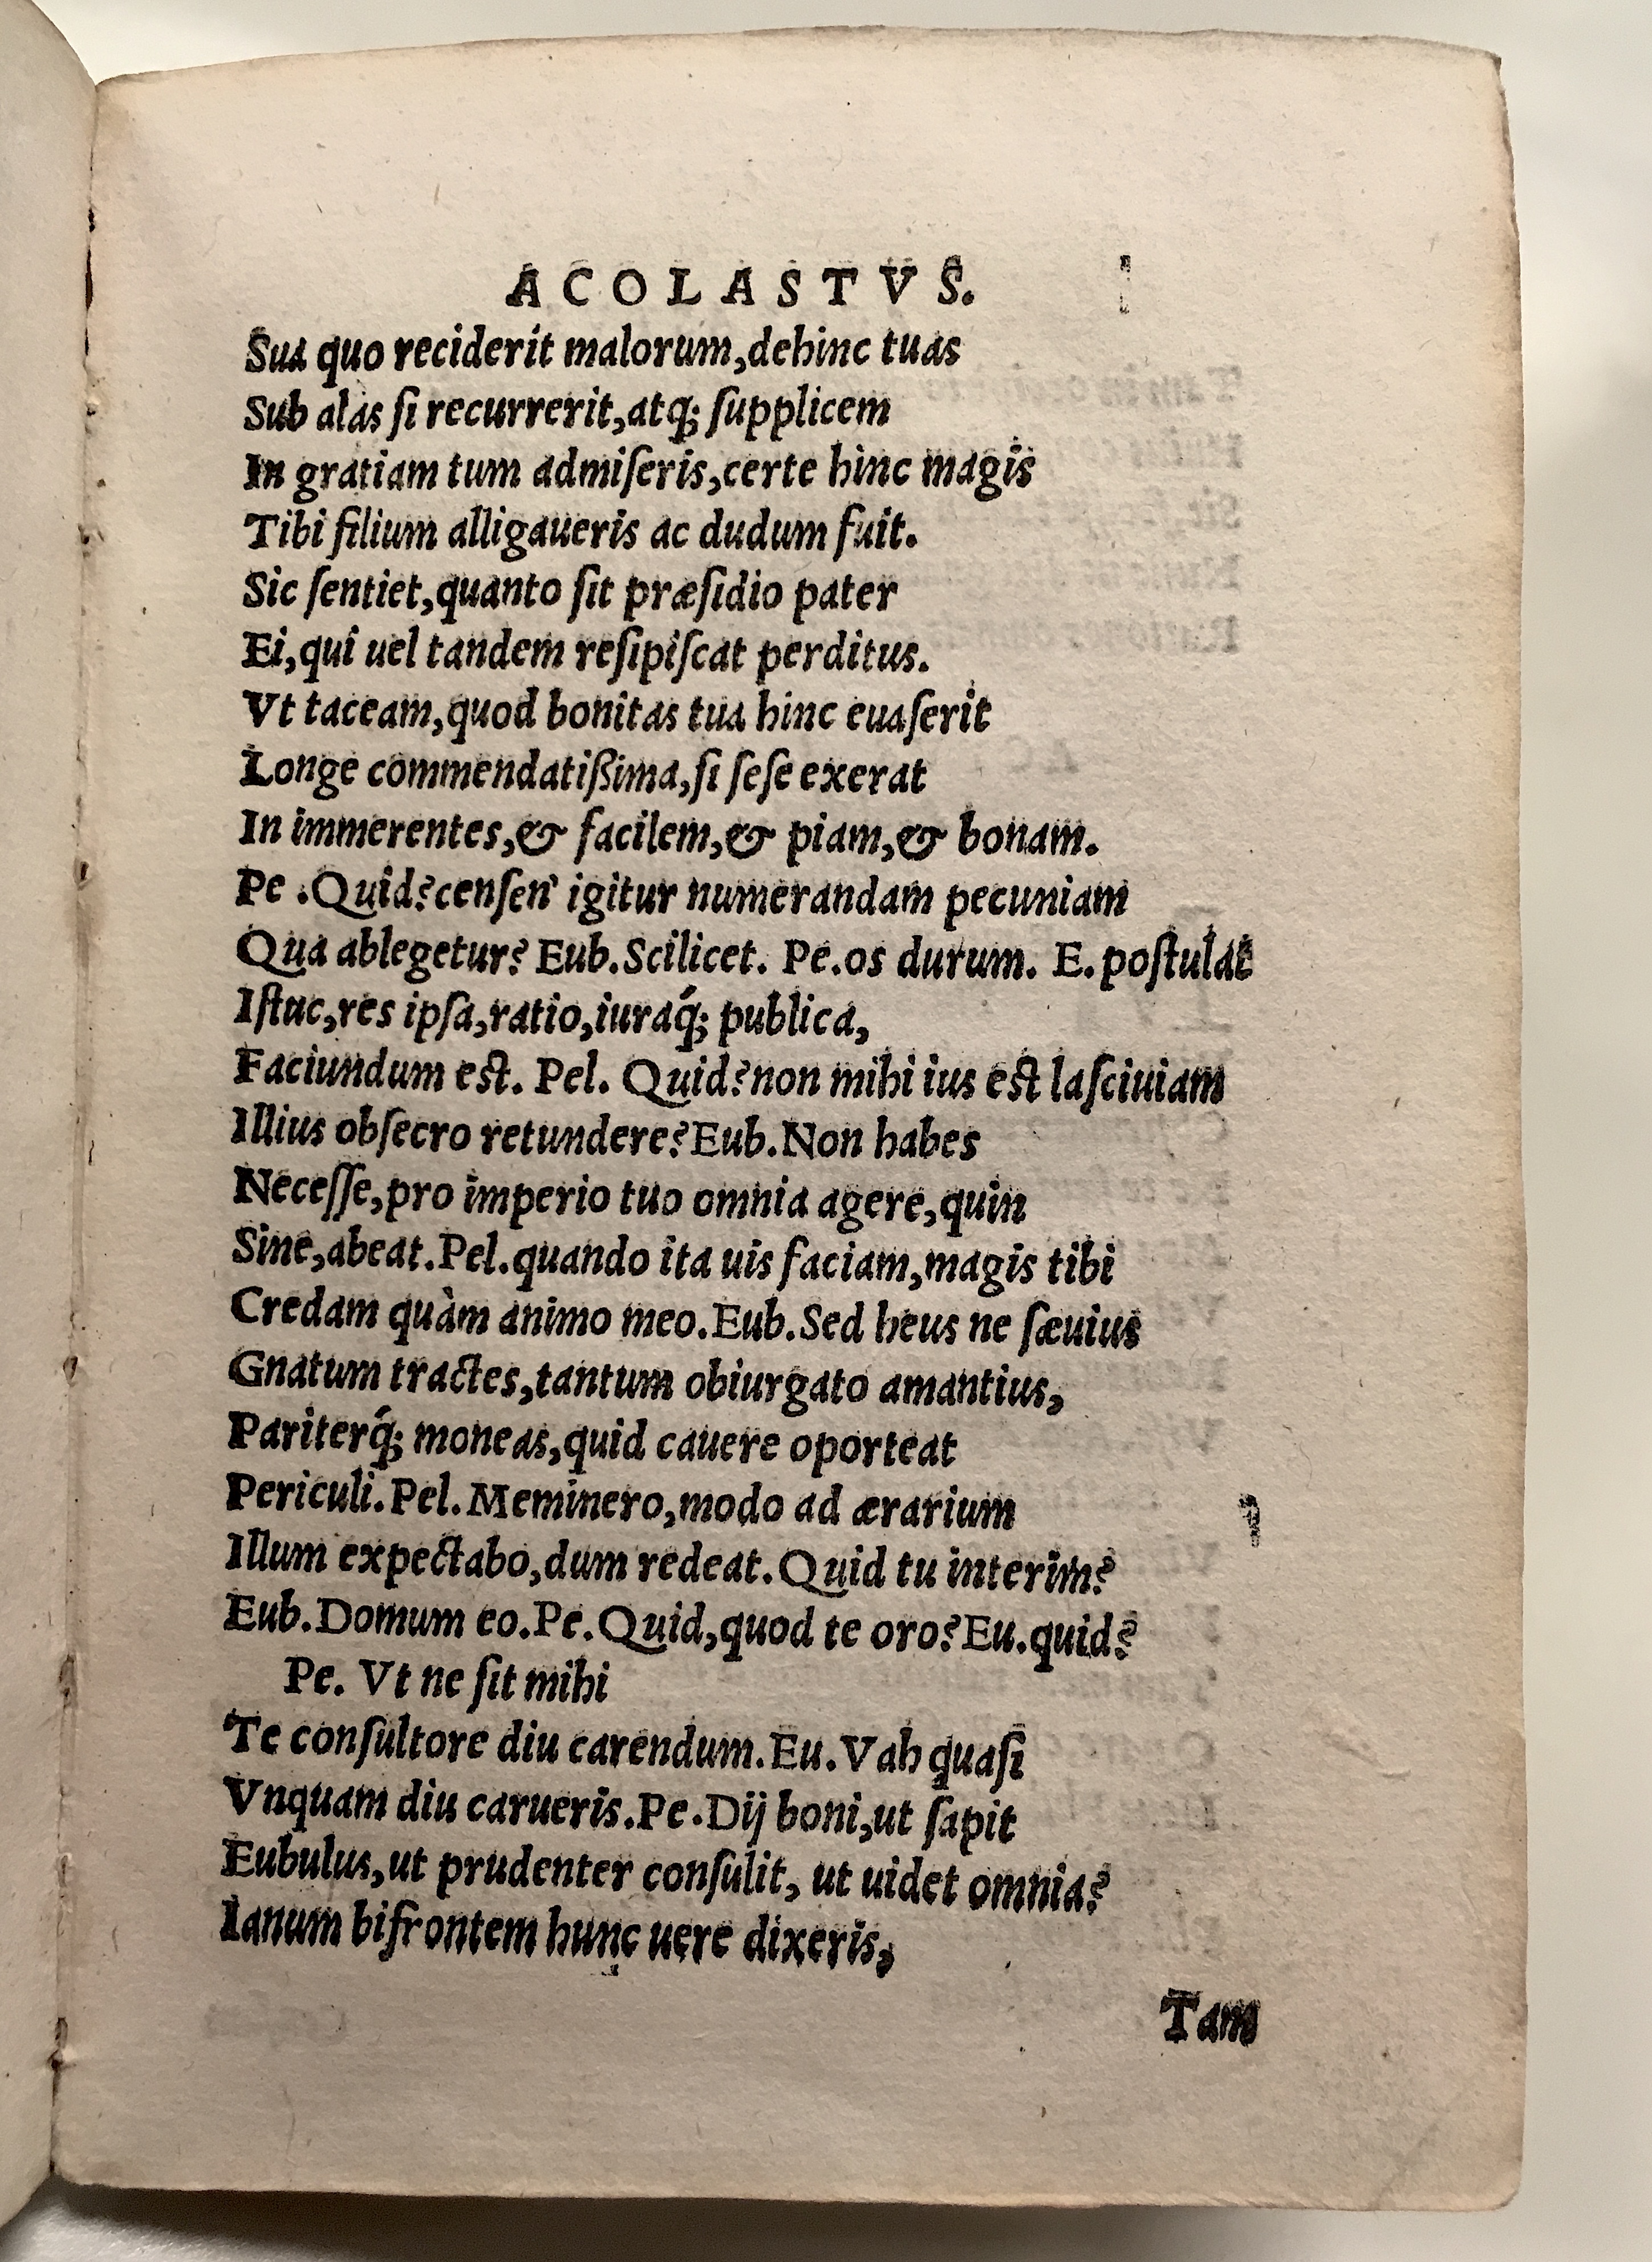 ACOLASTVS.
Sua quo reciderit malorum,dehinc tuas
Sub alas ſi recurrerit,atq; ſupplicem
In gratiam tum admiſeris,certe hinc magis
Tibi filium alligaueris ac dudum fuit.
Sic ſentiet,quanto ſit præſidio pater
Ei,qui uel tandem reſipiſcat perditus.
Vt taceam,quod bonitas tua hinc euaſerit
Longe commendatißima,ſi ſeſe exerat
In immerentes,& facilem,& piam,& bonam.
Pe .Quid?cenſen' igitur numerandam pecuniam
Qua ablegetur? Eub.Scilicet. Pe.os durum. E.poſtulat
Iſtuc,res ipſa,ratio,iuraq́; publica,
Faciundum eſt. Pel. Quid?non mihi ius eſt laſciuiam
Illius obſecro retundere?Eub.Non habes
Neceſſe,pro imperio tuo omnia agere,quin
Sine,abeat.Pel.quando ita uis faciam,magis tibi
Credam quàm animo meo.Eub.Sed heus ne ſæuius
Gnatum tractes,tantum obiurgato amantius,
Pariterq́; moneas,quid cauere oporteat
Periculi.Pel.Meminero,modo ad ærarium
Illum expectabo,dum redeat.Quid tu interim?
Eub.Domum eo.Pe.Quid,quod te oro?Eu.quid?
Pe. Vt ne ſit mihi
Te conſultore diu carendum.Eu.Vah quaſi
Vnquam diu carueris.Pe.Dij boni,ut ſapit
Eubulus,ut prudenter conſulit, ut uidet omnia?
Ianum bifrontem hunc uere dixeris,
Tam